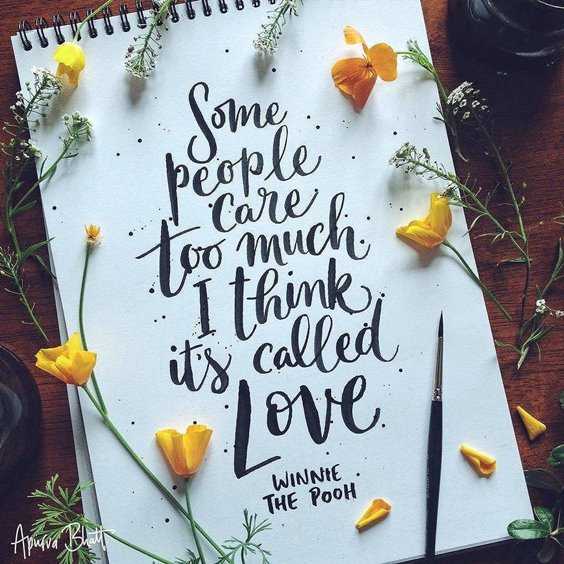 Some
people
care
too much.
I think
it's called
Love.
WINNIE
THE POOH
Apurva Bhatt